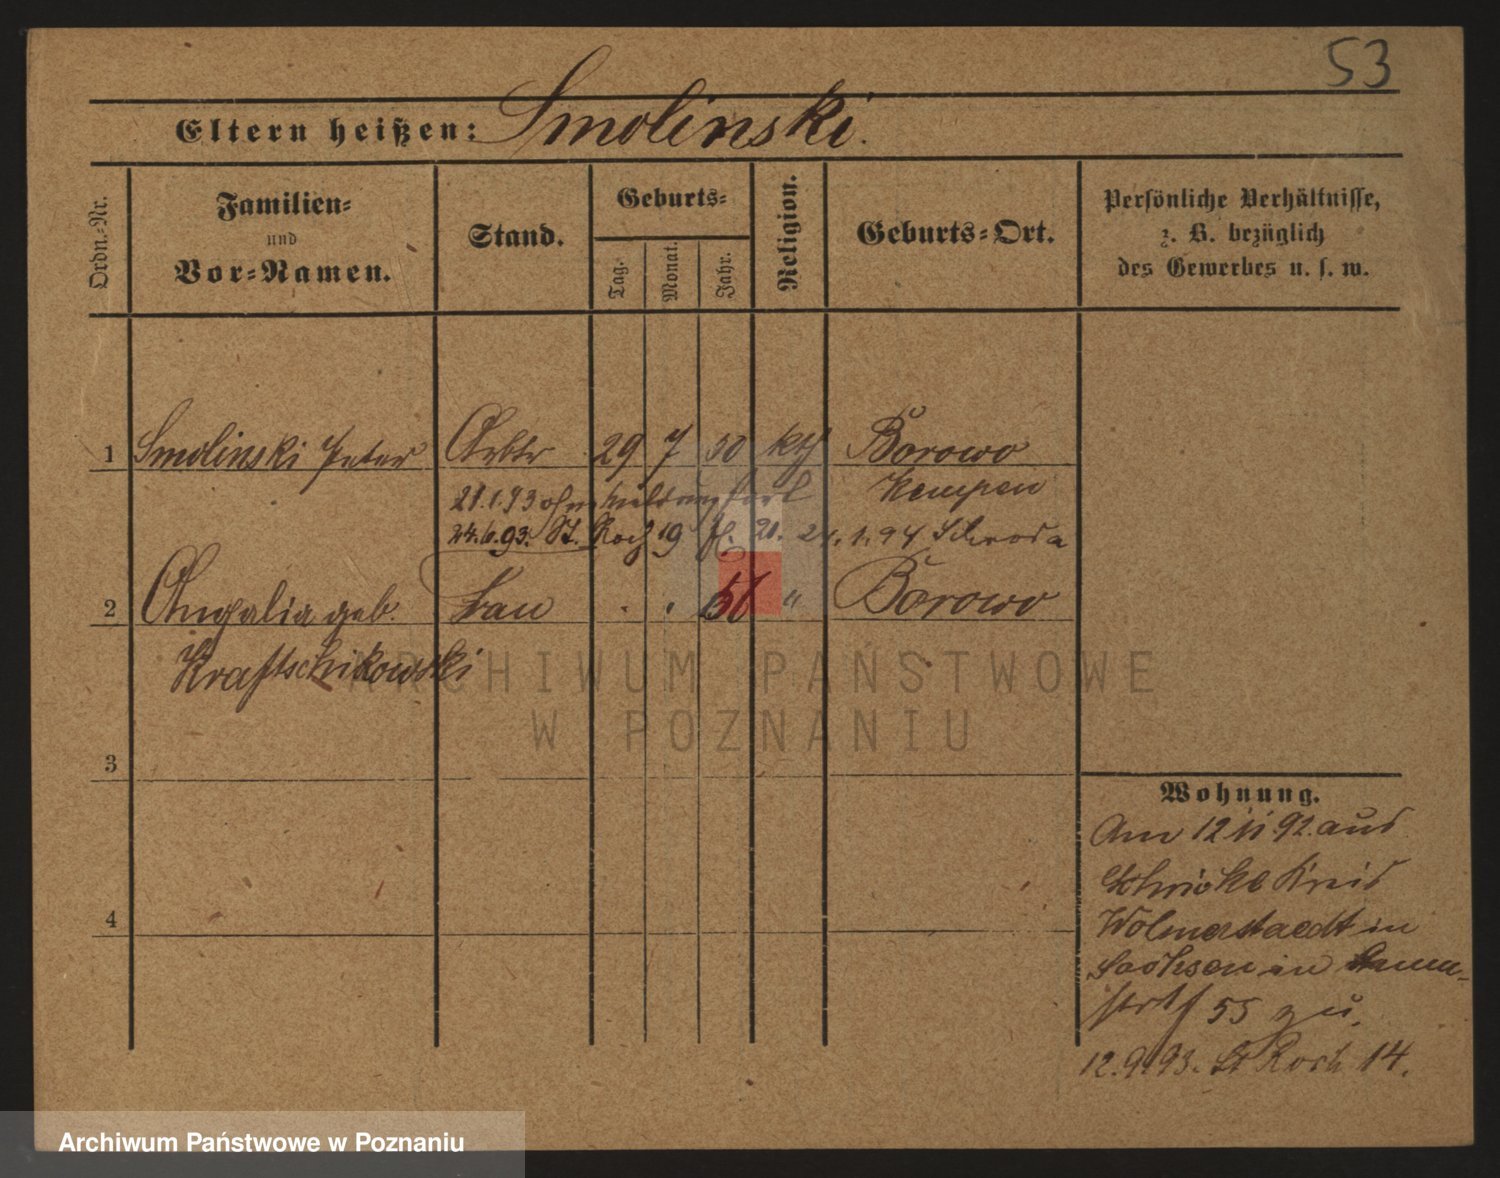 53
Eltern heißen: Smolinski.
Ordn.-Nr.
Familien-
und
Vor-Namen.
Stand.
Geburts-
Tag.
Monat.
Jahr.
Religion.
Geburts-Ort.
Persönliche Verhältnisse,
z. B. bezüglich
des Gewerbes u. s. w.
1 Smolinski Peter Arbtr 29 7 50 kth Borowo
Kempen
21.1.93 ohne Meldung fort
24.6.93. St. Roch 19 21. 24.1.94 Schroda
2 geb. Frau " Borowo
Kraftschikowski
ARCHIWUM PAŃSTWOWE
W POZNANIU
3
4
Wohnung.
Am 12 11 92 aus
Kreis
Wolmerstaedt in
Sachsen in
55 zu.
12.9.93. St Roch 14.
Archiwum Państwowe w Poznaniu